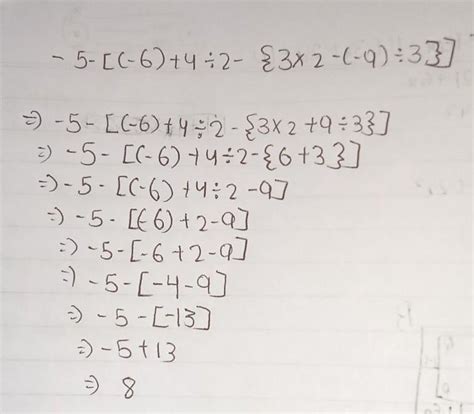 - 5-[(-6)+4÷2- {3×2-(-9)÷3}]
=) -5-[(-6)+4÷2-{3×2+9÷3}]
=) -5-[(-6)+4÷2-{6+3}]
=) -5-[(-6)+4÷2-9]
=) -5-[(-6)+2-9]
=) -5-[-6+2-9]
=) -5-[-4-9]
=) -5-[-13]
=) -5+13
=) 8